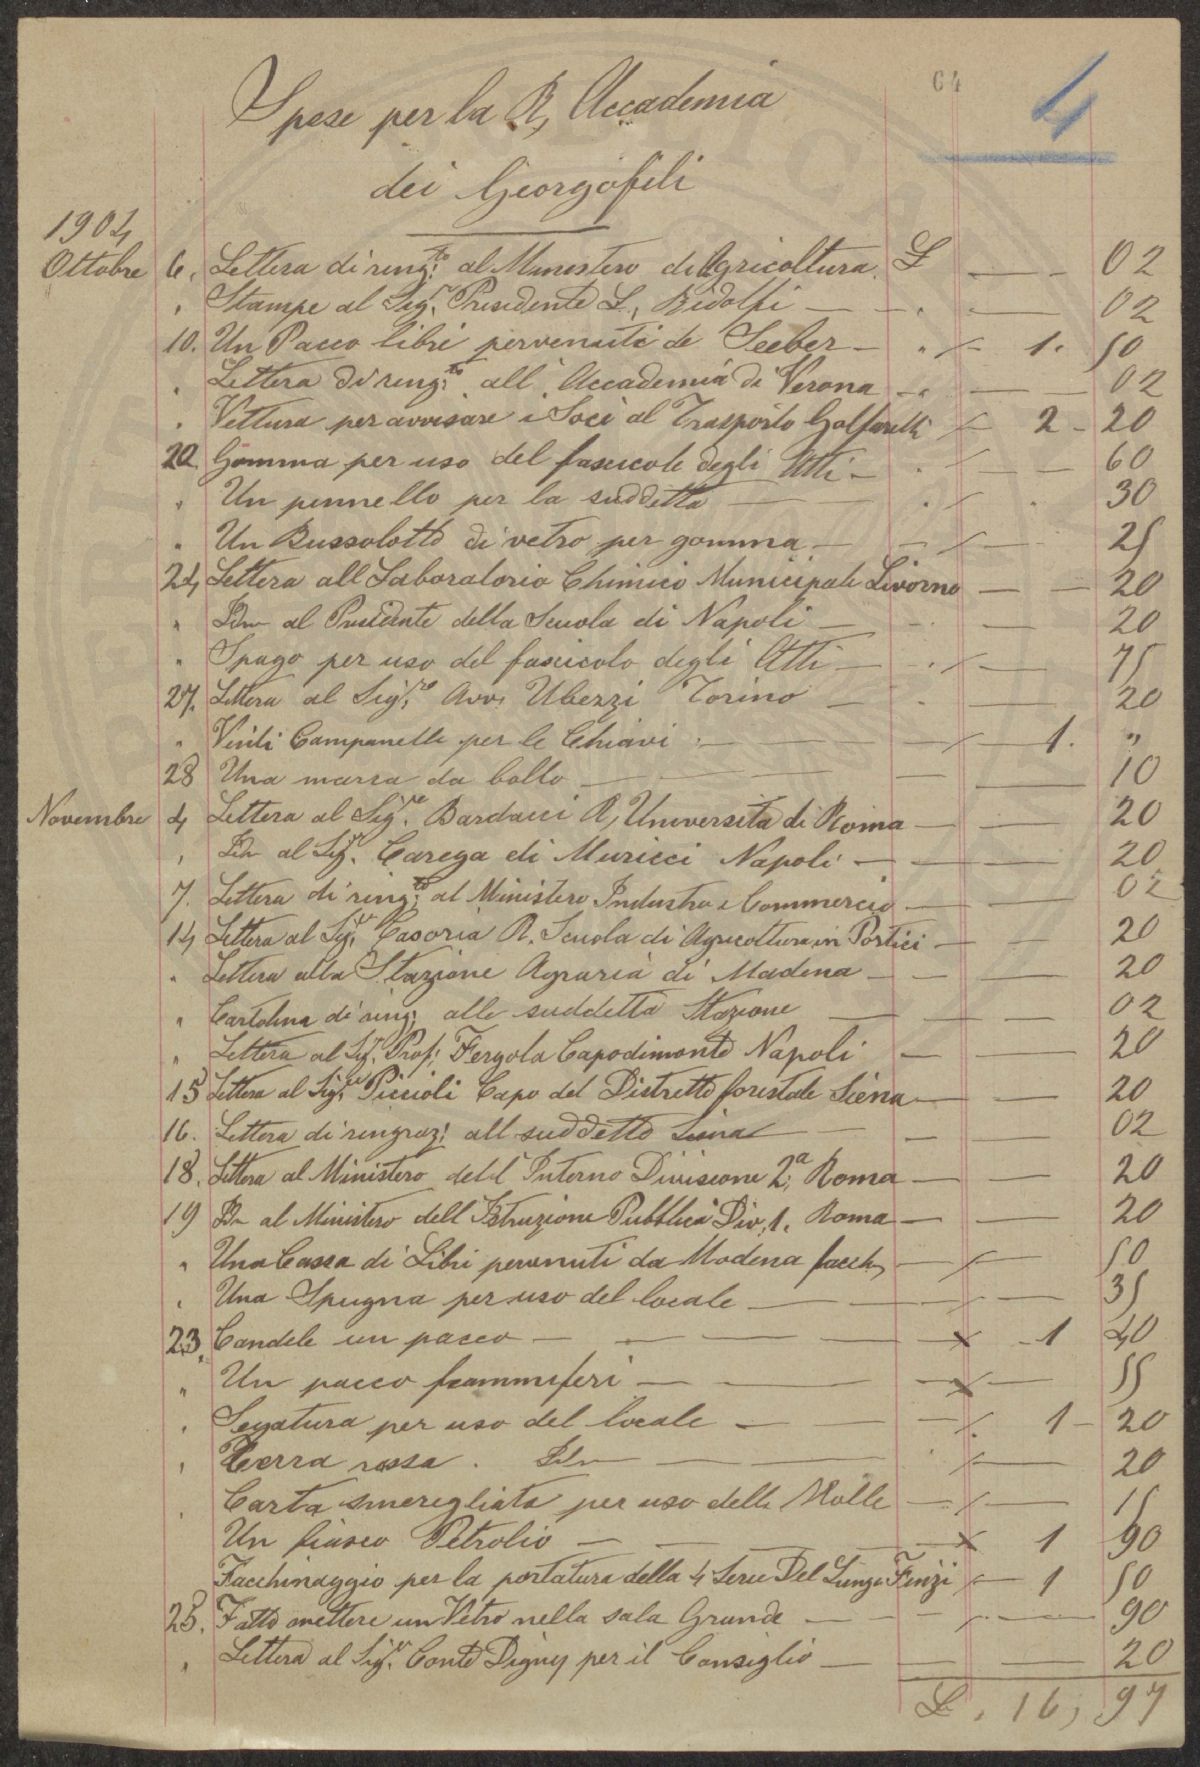 64
4
Spese per la R, Accademia
dei Georgofili
1904
Ottobre 6. Lettera di ring.to al Munestero di Agricoltura. L — - 02
" Stampe al Sig.r Presidente L, Ridolfi — — 02
10. Un Pacco libri pervenuti de Seeber — 1. 50
" Lettera di ring.to all' Accademia di Verona — — 02
" Vettura per avvisare i Soci al Trasporto Golfarelli — 2 - 20
22 Gomma per uso del fascicole degli Atti — — 60
" Un pennello per la suddetta — 30
" Un Bussolotto di vetro per gomma — — 25
24 Lettera all Laboratorio Chimico Municipale Livorno — — 20
" Idm al Presidente della Scuola di Napoli — — 20
" Spago per uso del fascicolo degli Atti — — 75
27. Lettera al Sig.re Avv. Ubezzi Torino — — 20
" Venti Campanelle per le Chiavi — — 1. "
28 Una marca da bollo — — 10
Novembre 4 Lettera al Sig.re Bardacci R, Università di Roma — — 20
" Idm al Sig.r Carega di Muricci Napoli — — 20
7. Lettera di ring.to al Ministero Industria e Commercio — — 02
14 Lettera al Sig.r Casoria R. Scuola di Agricoltura in Portici — — 20
" Lettera alla Stazione Agraria di Modena — — 20
" Cartolina di ring. alle suddetta Stazione — — 02
" Lettera al Sig.r Prof. Fergola Capodimonte Napoli — — 20
15 Lettera al Sig.re Piccioli Capo del Distretto forestale Siena — — 20
16. Lettera di ringraz. all suddetto Siena — — 02
18. Lettera al Ministero dell' Interno Divisione 2.a Roma — — 20
19 Idm al Ministero dell Istruzione Pubblica Div, 1. Roma — — 20
" Una Cassa di Libri pervenuti da Modena facch, — — 50
" Una Spugna per uso del locale — — 35
23. Candele un pacco — — 1 40
" Un pacco fiammiferi — — 55
" Segatura per uso del locale — — 1 - 20
" Terra rossa. Idm — — 20
" Carta smerigliata per uso delle Molle — — 15
Un fiasco Petrolio — — 1 90
Facchinaggio per la portatura della 4 Serie Del Lungo Finzi — 1 50
25. Fatto mettere un Vetro nella sala Grande — — 90
" Lettera al Sig.r Conte Digny per il Consiglio — — 20
L. 16, 97